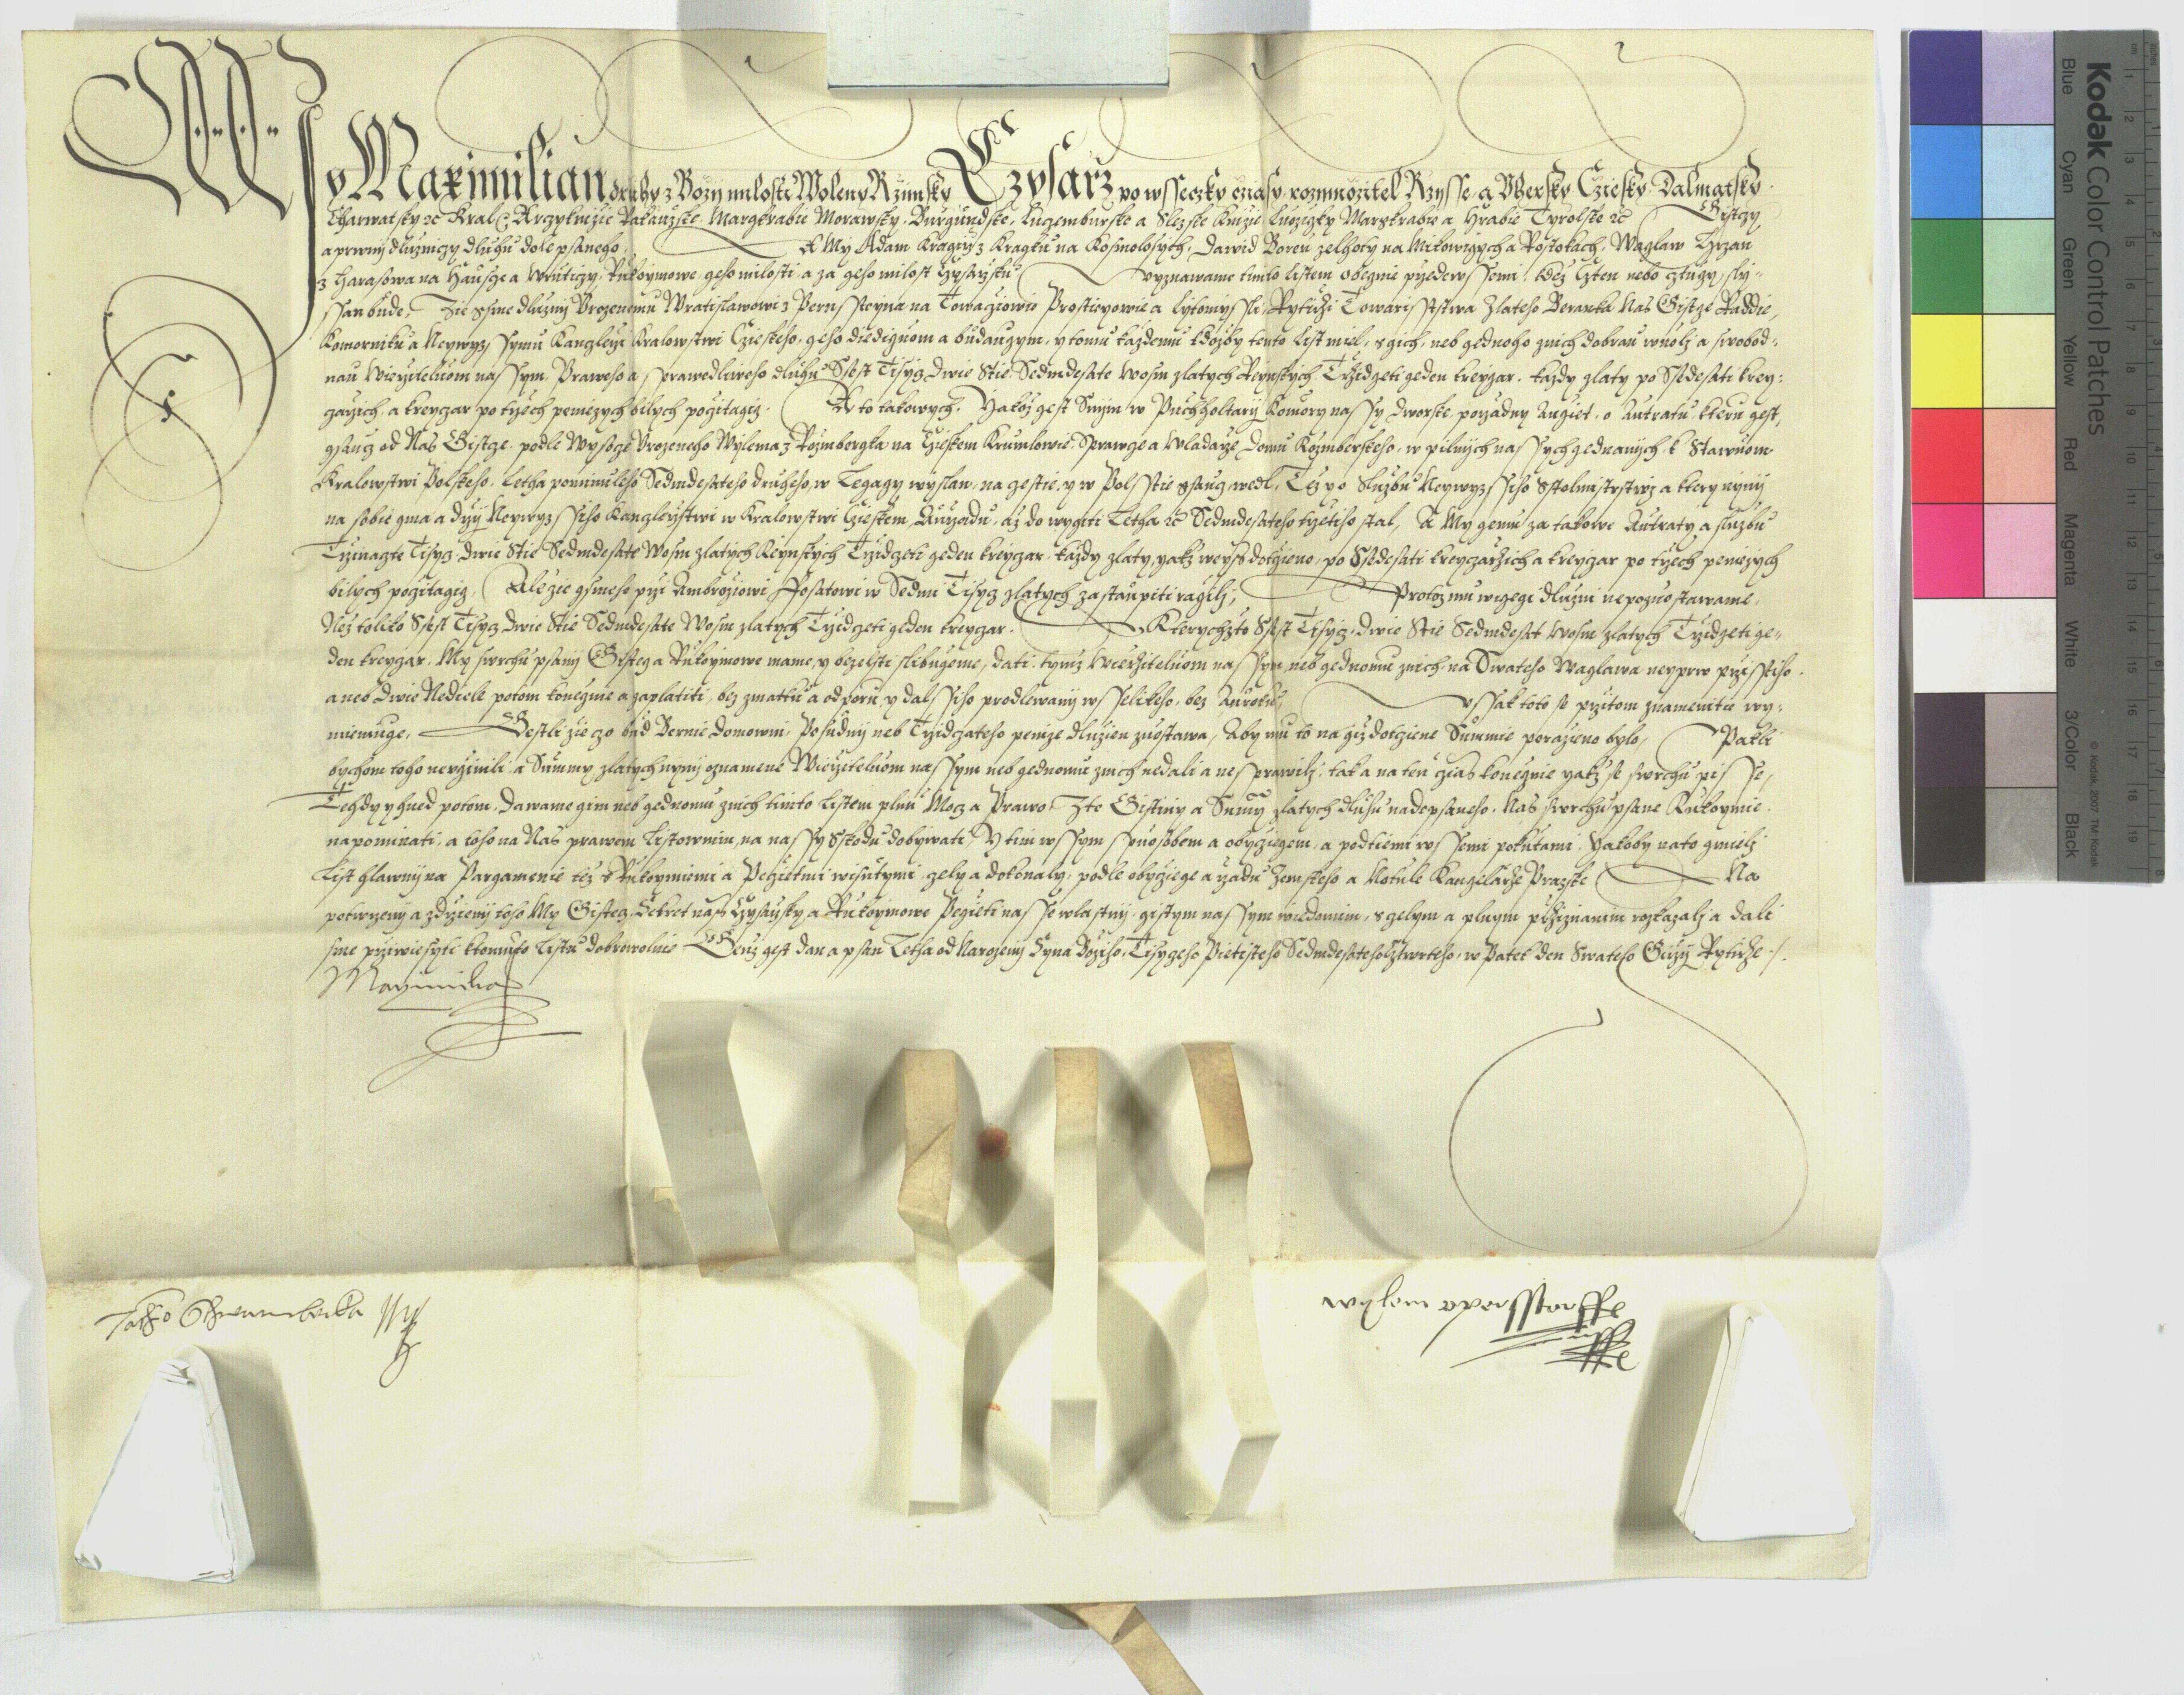 My Maximilian druhy z Bozy milosti Woleny Rzimsky Czysarz po wsseczky cziasy rozmnozitel Rzysse, a Uhersky Cziesky Dalmatsky
Charwatsky ꝛc Kral, Arczyknize Rakauzske, Margkrabie Morawsky, Burgundske, Lucemburske a Slezske Knize, Luziczky Margkrabie a Hrabie Tyrolske ꝛc Gistczy
a prwny dluzniczy dluhu dole psaneho. A My Adam Kragirz z Kragku na Kosmonosych, Dawid Boren zelhoty na Mikowiczych a Roztokach, Waczlaw Hrzan
z Harasowa na Hauscze a Wruticzy, Rukoymowe geho milosti, a za geho milost Czysarzsku, wyznawame timto listem obecznie przedewssemi, kdez czten nebo cztuczy sly-
ssan bude, Zie gsme dluzni Urozenemu Wratislawowi z Pernssteyna na Towaczowie Prostiegowie a Lytomyssli, Rytirzi Towarisststwa Zlateho Beranka, Nas Gistcze Raddie,
Komorniku a Neywyzssymu Kanczlerzi Kralowstwi Czieskeho, geho diediczuom a buducznym, y tomu kazdemu kdozby tento list miel, s gich, neb gednoho znich dobrau wuolj a swobod-
nau Wierzitelnom nassym. Praweho a sprawedliweho dluhu Ssest Tisycz Dwie Stie Sedmdesate Wosm zlatych Reynskych Trzidczeti geden kreyczar. kazdy zlaty po Ssedesati krey-
czarzich, a kreyczar po trzech penizych bilych poczitagicz. A to takowych, Yakoz gest Sniim w Puchholtarzy Komory nassy dworske, porzadny Auczet, o Autratu kteru gest,
gsaucz od Nas Gistcze, podle Wysocze Urozeneho Wylema z Rozmbergka na Czieskem Krumlowie, Sprawcze a Wladarze Domu Rozmberskeho, w pilnych nassych gednanych k Stawuom
Kralowstwi Polskeho, Letha pominuleho Sedmdesateho druheho, w Legaczy wyslan, na czestie, y w Polsstie gsaucz, wedl, Tez y o Sluzbu Neywyzssiho Hofmistrstwi, a ktery nyny
na sobie gma a drzy Neywyzssiho Kanczlerzstwi w Kralowstwi Czieskem, Aurzadu, az do wygiti Letha ꝛc Sedmdesateho trzetiho stal, A My gemu za takowe Autraty a sluzbu
Trzinaczte Tisycz Dwie Stie Sedmdesate Wosm zlatych Reynskych Trzidczeti geden kreyczar, kazdy zlaty, yakz weyss dotczieno, po Ssedesati kreyczarzich a kreyczar po trzech penizych
bilych poczitagicz. Ale zie gsme ho przi Ambroziowi w Sedmi Tisycz zlatych zastaupiti raczilj, Protoz mu wiczegi dluzni nepozuostawame,
Nez toliko Ssest Tisycz Dwie Stie Sedmdesate Wosm zlatych Trzidczeti geden kreyczar. Kterychzto Ssest Tisycz Dwie Stie Sedmdesat Wosm zlatych Trzidczeti ge-
den kreyczar, My swrchu psany Gistecz a Rukoymowe mame, y bezelsti slibugeme, dati tymz Wierzitelnom nassym, neb gednomu znich, na Swateho Waczlawa neyprw przisstiho
aneb Dwie Nediele potom konecznie a zaplatiti, bez zmatku a odporu, y dalssiho prodlewany wsselikeho, bez Auroku, wssak toto se przitom znamenitie wy-
mieniuge, Gestlizie czo bud Bernie domowni, Posudny neb Trzidczateho penize dluzien zuostawa, Aby mu to na giz dotczene Summie porazieno bylo, Pakli
bychom toho neuczinili, a Summy zlatych nyny oznamene Wierzitelnom nassym neb gednomu znich nedali a nesprawilj, tak a na ten czas konecznie yakz se swrchu pisse,
Tehdy y hned potom, Dawame gim neb gednomu znich timto Listem plnu Mocz a Prawo, Z te Gistiny a Summy zlatych dluhu nadepsaneho, Nas swrchu psane Rukoymie
napominati, a toho na Nas prawem Listownim, na nassy Sskodu dobywati, Y tim wssym spuosobem a obyczegem, a podtiemi wssemi pokutami, Yakoby na to gmielj
List hlawny na Pargamenie tez s Rukoymiemi a Peczietmi wisutymi, czely a dokonaly, podle obycziege a rzadu Zemskeho a Notule Kanczelarze Prazske Na
potwrzeny a zdrzeny toho My Gistecz, Sekret nass Czysarzsky a Rukoymowe Peczieti nasse wlastny, gistym nassym wiedomim, s czelym a plnym przicznanim rozkazalj a dali
sme prziwiesyti ktomuto Listu dobrowolnie Genz gest dan a psan Letha od Narozeny Syna Bozyho, Tisyczeho Pietisteho Sedmdesateho cztwrteho, w Patek den Swateho Girzy Rytirze
Maximilian